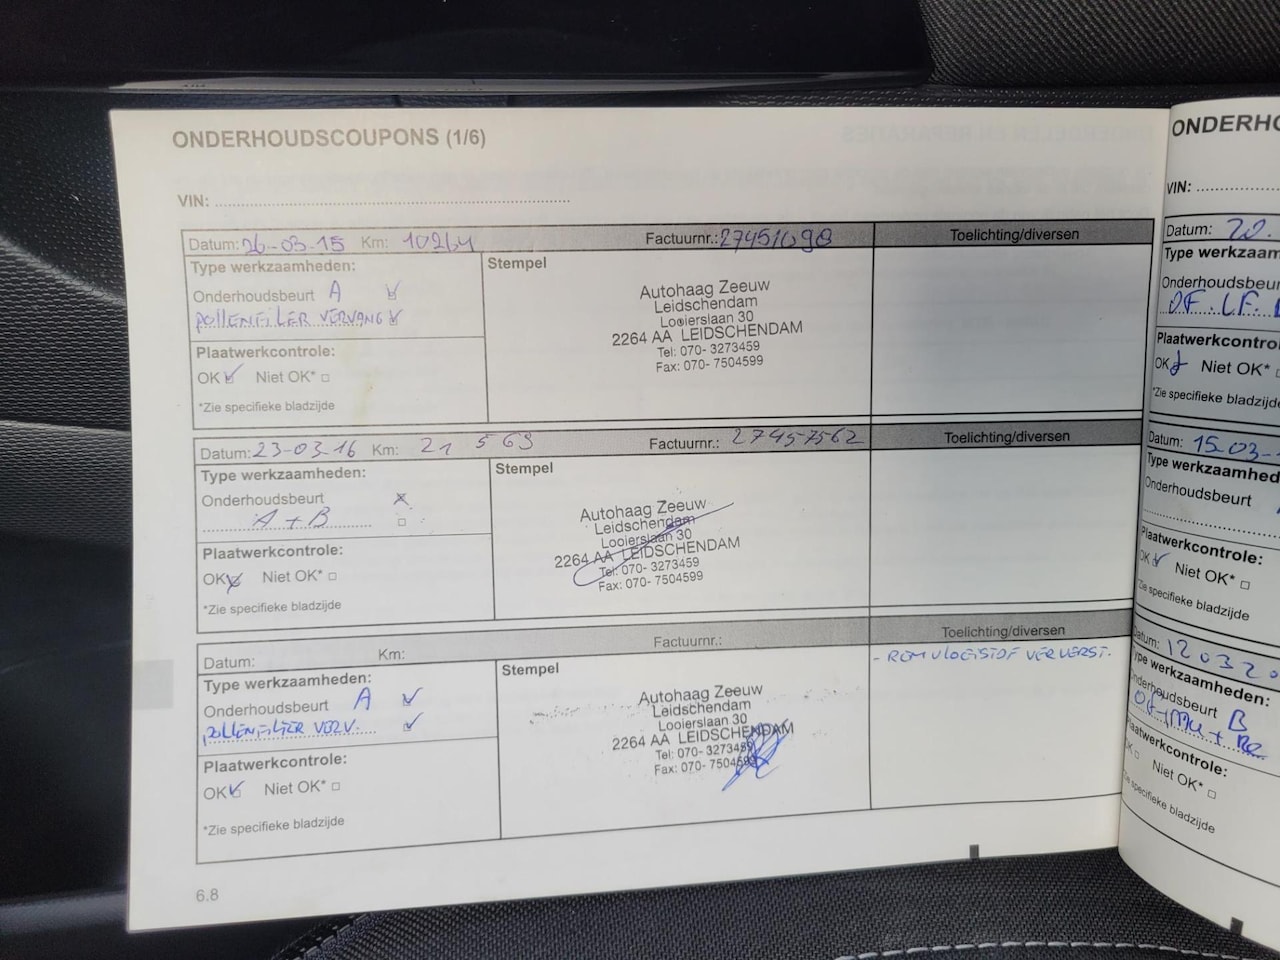 ONDERHOUDSCOUPONS (1/6)
VIN:
Datum: 26-03-15 Km: 10264 Factuurnr.: 27451098 Toelichting/diversen
Type werkzaamheden: Stempel
Onderhoudsbeurt A
POLLENFILTER VERVANG
Plaatwerkcontrole:
OK Niet OK*
*Zie specifieke bladzijde
Autohaag Zeeuw
Leidschendam
Looierslaan 30
2264 AA LEIDSCHENDAM
Tel: 070- 3273459
Fax: 070- 7504599
Datum: 23-03-16 Km: 21 569 Factuurnr.: 27457562 Toelichting/diversen
Type werkzaamheden: Stempel
Onderhoudsbeurt
A+B
Plaatwerkcontrole:
OK Niet OK*
*Zie specifieke bladzijde
Autohaag Zeeuw
Leidschendam
Looierslaan 30
2264 AA LEIDSCHENDAM
Tel: 070- 3273459
Fax: 070- 7504599
Datum: Km: Factuurnr.: Toelichting/diversen
Type werkzaamheden: Stempel
Onderhoudsbeurt A
POLLENFILTER VERV.
Plaatwerkcontrole:
OK Niet OK*
*Zie specifieke bladzijde
Autohaag Zeeuw
Leidschendam
Looierslaan 30
2264 AA LEIDSCHENDAM
Tel: 070- 3273459
Fax: 070- 7504599
- REMVLOEISTOF VERVERST.
6.8
ONDERHO
VIN:
Datum: 20.
Type werkzaam
Onderhoudsbeur
OF. LF.
Plaatwerkcontro
OK Niet OK*
*Zie specifieke bladzijde
Datum: 15-03-
Type werkzaamhed
Onderhoudsbeurt
Plaatwerkcontrole:
OK Niet OK*
*Zie specifieke bladzijde
Datum: 12032
Type werkzaamheden:
Onderhoudsbeurt B
Plaatwerkcontrole:
OK Niet OK*
*Zie specifieke bladzijde